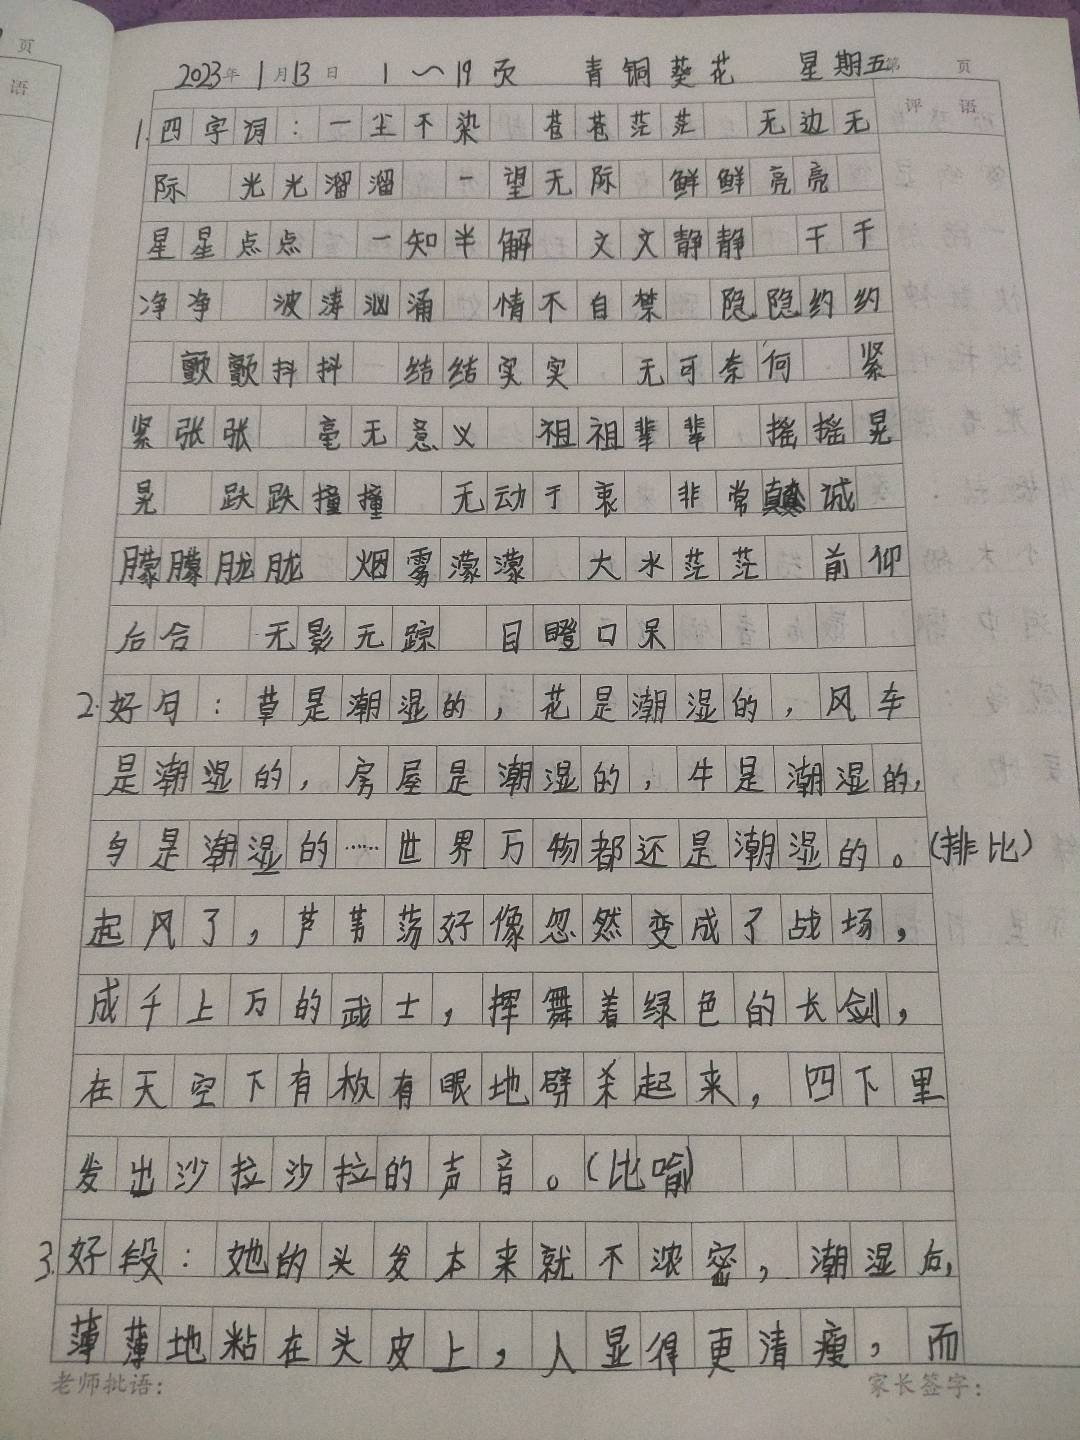 页
语
2023年1月13日 1~19页 青铜葵花 星期五 第 页
评语
1.四字词：一尘不染 苍苍茫茫 无边无
际 光光溜溜 一望无际 鲜鲜亮亮
星星点点 一知半解 文文静静 干干
净净 波涛汹涌 情不自禁 隐隐约约
颤颤抖抖 结结实实 无可奈何 紧
紧张张 毫无意义 祖祖辈辈 摇摇晃
晃 跌跌撞撞 无动于衷 非常真诚
朦朦胧胧 烟雾濛濛 大水茫茫 前仰
后合 无影无踪 目瞪口呆
2.好句：草是潮湿的，花是潮湿的，风车
是潮湿的，房屋是潮湿的，牛是潮湿的，
鸟是潮湿的……世界万物都还是潮湿的。(排比)
起风了，芦苇荡好像忽然变成了战场，
成千上万的武士，挥舞着绿色的长剑，
在天空下有板有眼地劈杀起来，四下里
发出沙拉沙拉的声音。(比喻)
3.好段：她的头发本来就不浓密，潮湿后，
薄薄地粘在头皮上，人显得更清瘦，而
老师批语： 家长签字：